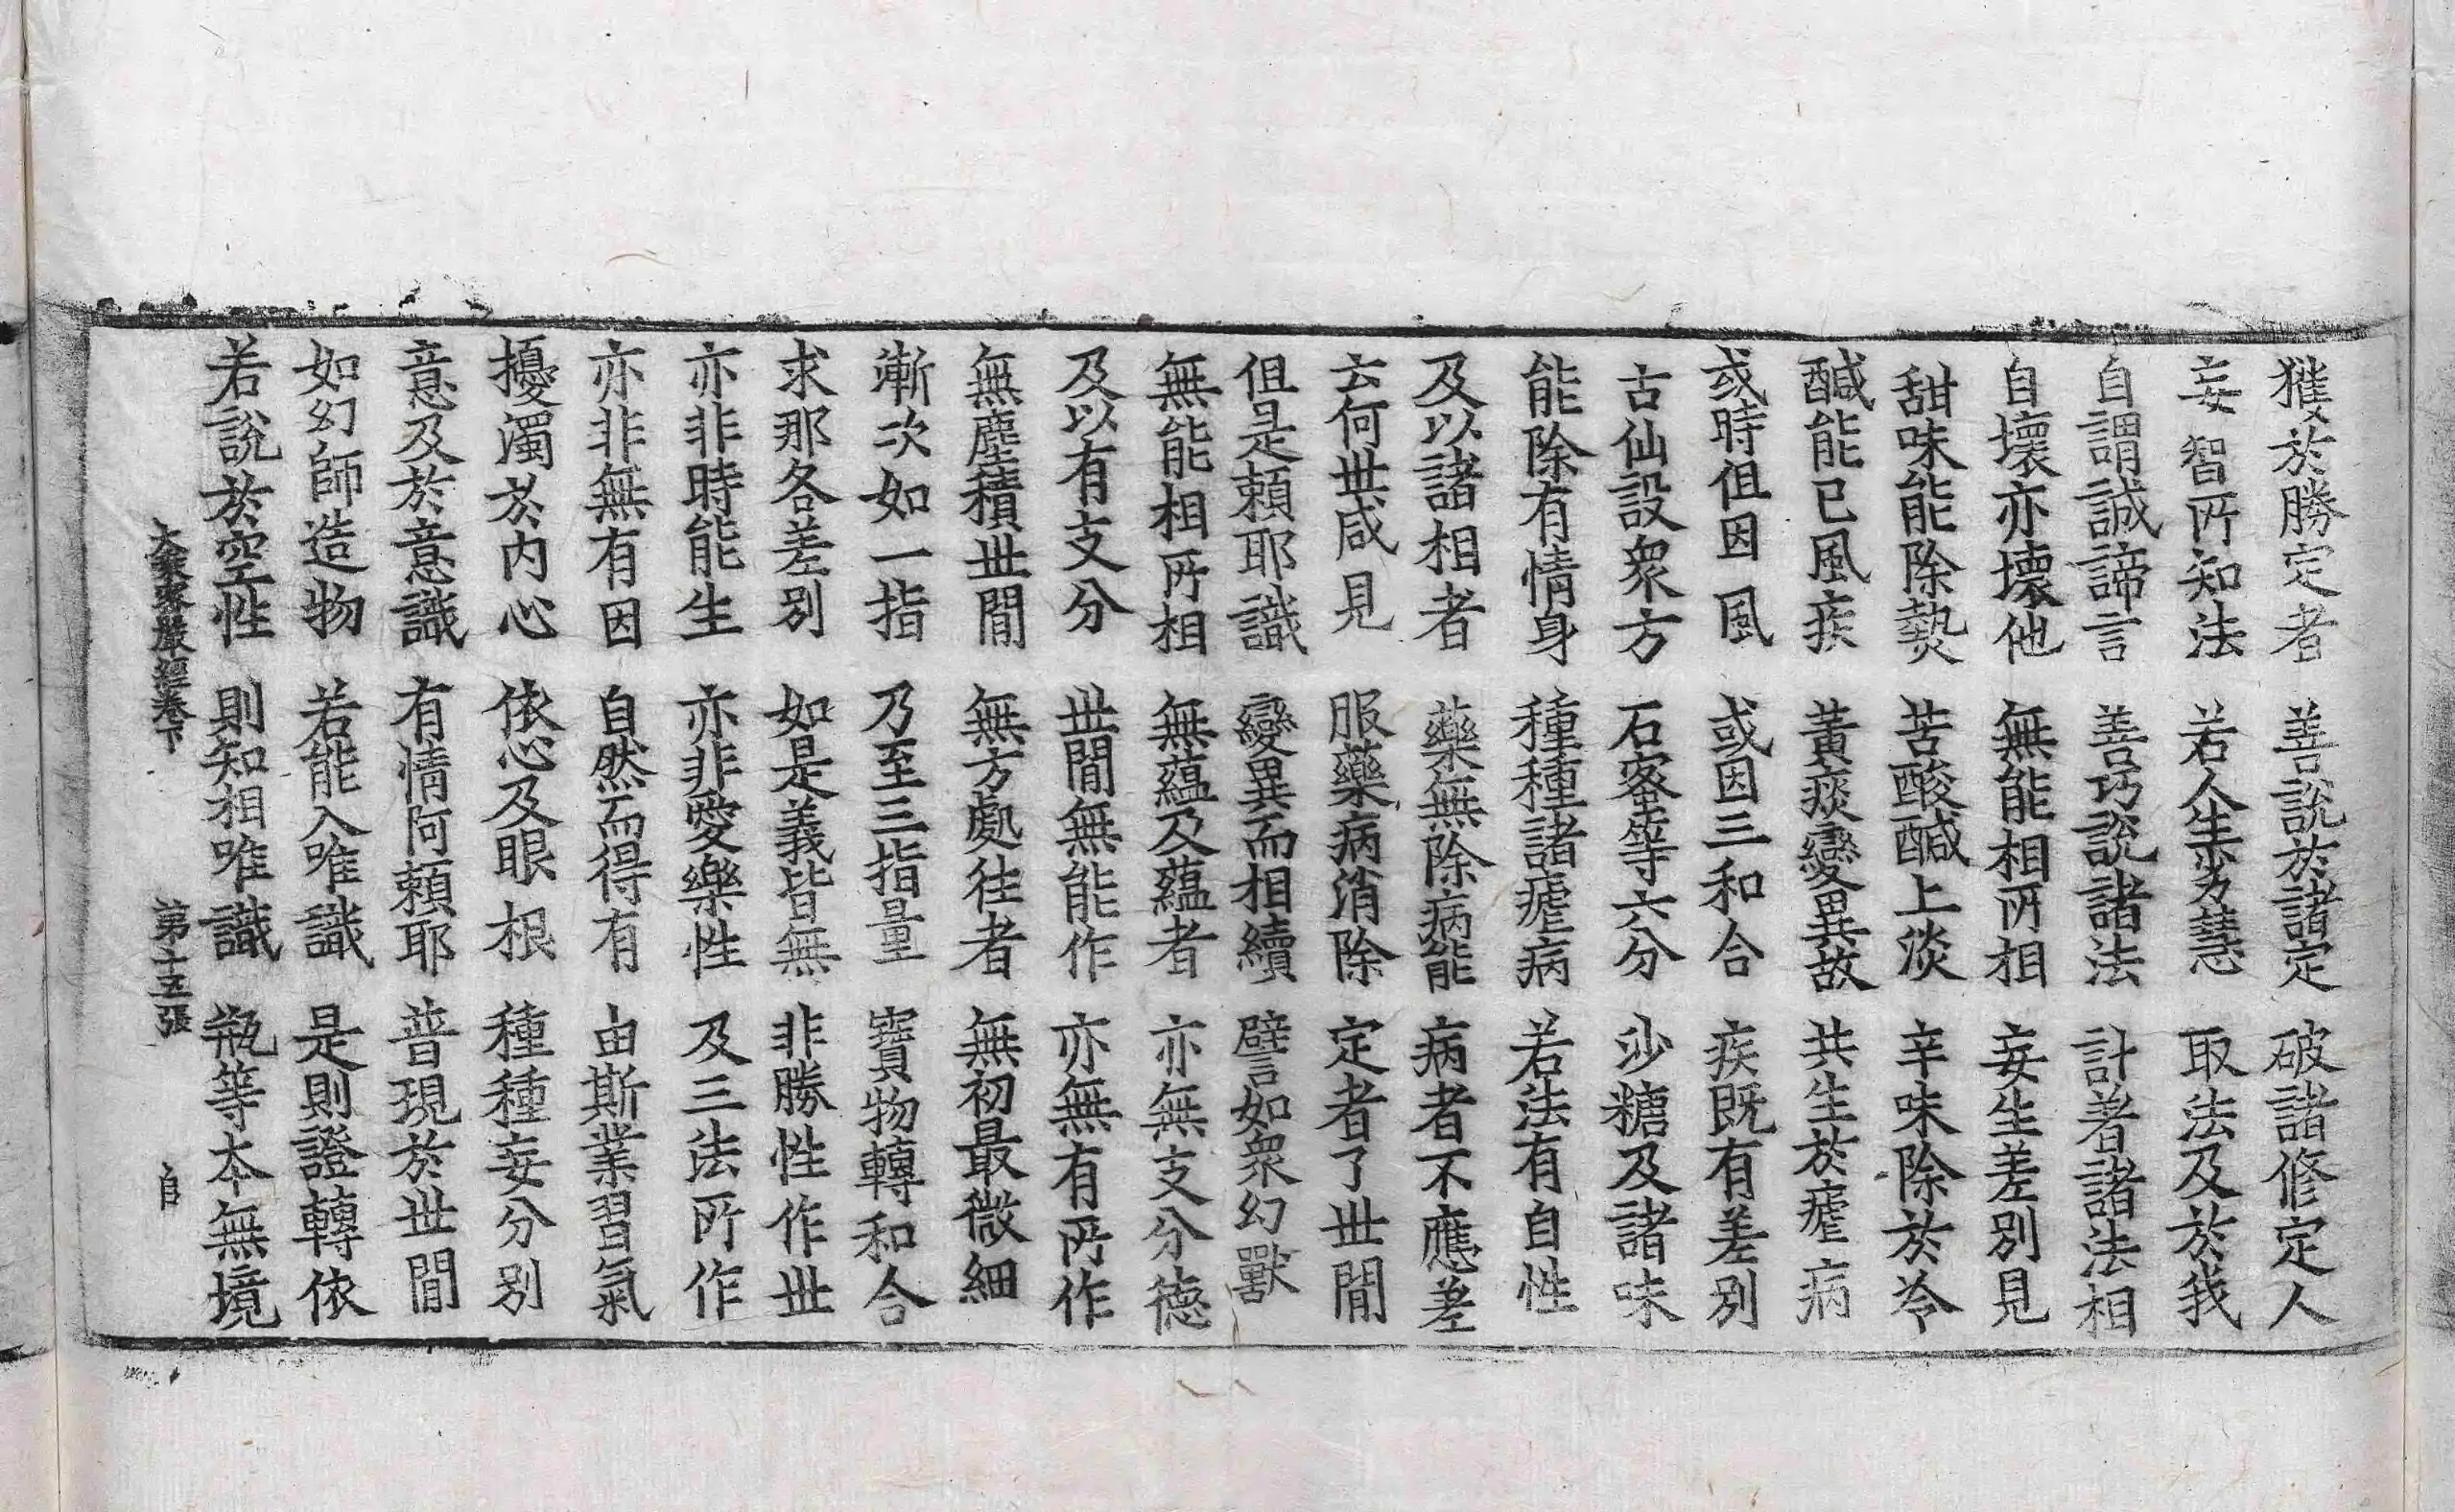 獲於勝定者　善說於諸定　破諸修定人
妄智所知法　若人生劣慧　取法及於我
自謂誠諦言　善巧說諸法　計著諸法相
自壞亦壞他　無能相所相　妄生差別見
甜味能除熱　苦酸醎上淡　辛味除於冷
醎能已風疾　黃痰變異故　共生於瘧病
或時但因風　或因三和合　疾既有差別
古仙設衆方　石蜜等六分　沙糖及諸味
能除有情身　種種諸瘧病　若法有自性
及以諸相者　藥無除病能　病者不應差
云何世咸見　服藥病消除　定者了世間
但是頼耶識　變異而相續　譬如衆幻獸
無能相所相　無蘊及蘊者　亦無支分德
及以有支分　世間無能作　亦無有所作
無塵積世間　無方處徃者　無初最微細
漸次如一指　乃至三指量　寶物轉和合
求那各差別　如是義皆無　非勝性作世
亦非時能生　亦非愛樂性　及三法所作
亦非無有因　自然而得有　由斯業習氣
擾濁於内心　依心及眼根　種種妄分別
意及於意識　有情阿頼耶　普現於世間
如幻師造物　若能入唯識　是則證轉依
若說於空性　則知相唯識　瓶等本無境
大乘密嚴經卷下　第十五張　自